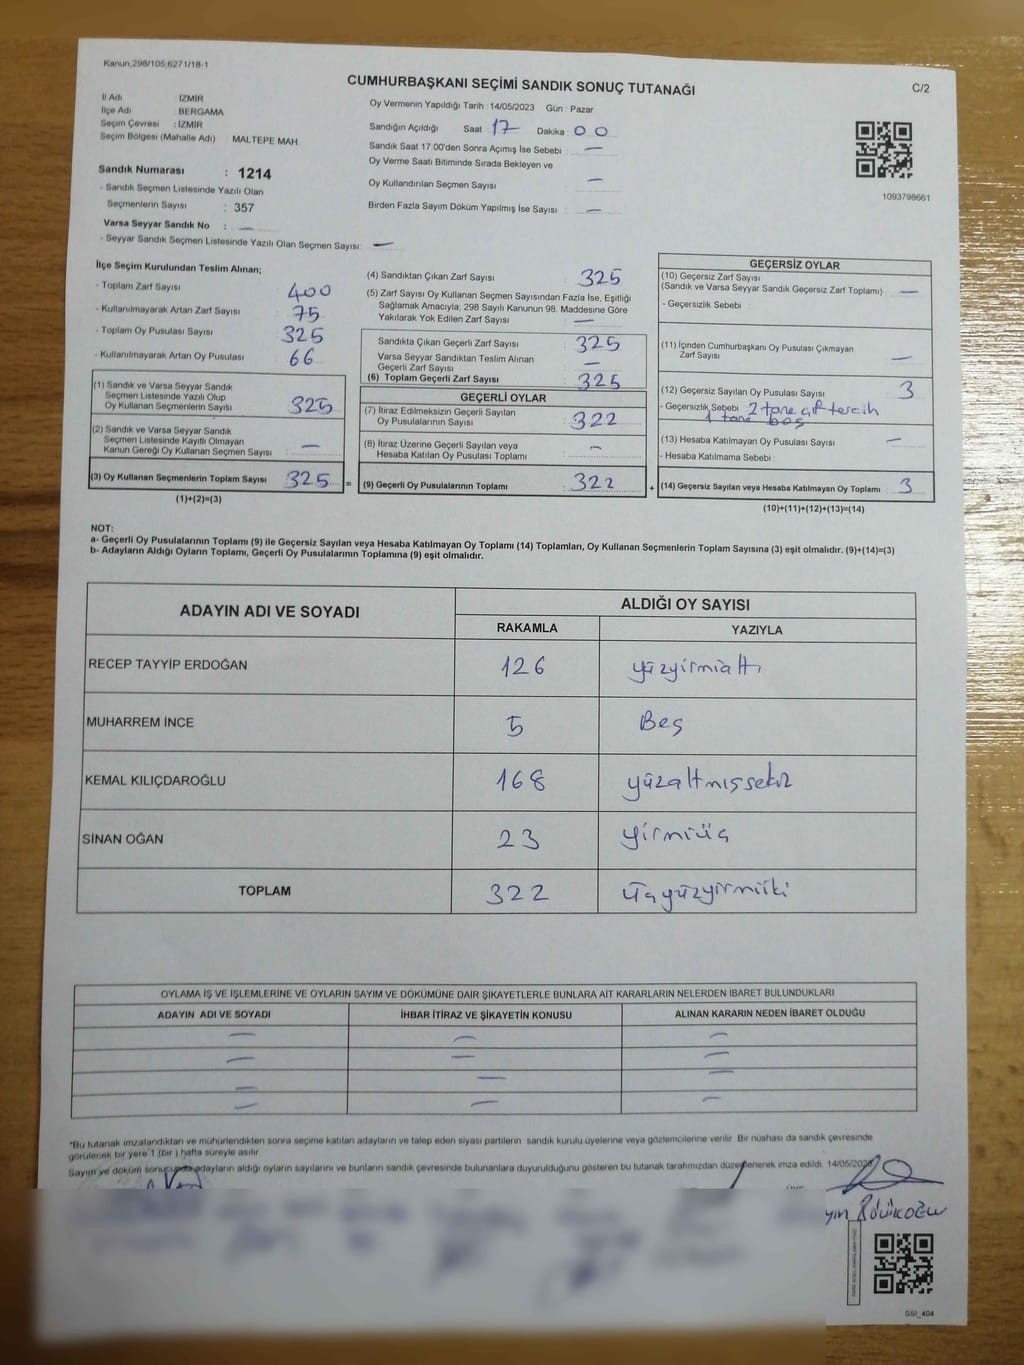 Kanun,298/105,6271/18-1
CUMHURBAŞKANI SEÇİMİ SANDIK SONUÇ TUTANAĞI
C/2
İl Adı İZMİR
İlçe Adı BERGAMA
Seçim Çevresi : İZMİR
Seçim Bölgesi (Mahalle Adı) MALTEPE MAH.
Sandık Numarası : 1214
- Sandık Seçmen Listesinde Yazılı Olan
Seçmenlerin Sayısı : 357
Varsa Seyyar Sandık No : —
- Seyyar Sandık Seçmen Listesinde Yazılı Olan Seçmen Sayısı: —
Oy Vermenin Yapıldığı Tarih : 14/05/2023 Gün : Pazar
Sandığın Açıldığı Saat : 17 Dakika : 00
Sandık Saat 17:00'den Sonra Açımış İse Sebebi : —
Oy Verme Saati Bitiminde Sırada Bekleyen ve
Oy Kullandırılan Seçmen Sayısı : —
Birden Fazla Sayım Döküm Yapılmış İse Sayısı : —
1093798661
İlçe Seçim Kurulundan Teslim Alınan;
- Toplam Zarf Sayısı : 400
- Kullanılmayarak Artan Zarf Sayısı : 75
- Toplam Oy Pusulası Sayısı : 325
- Kullanılmayarak Artan Oy Pusulası : 66
(1) Sandık ve Varsa Seyyar Sandık
Seçmen Listesinde Yazılı Olup
Oy Kullanan Seçmenlerin Sayısı : 325
(2) Sandık ve Varsa Seyyar Sandık
Seçmen Listesinde Kayıtlı Olmayan
Kanun Gereği Oy Kullanan Seçmen Sayısı : —
(3) Oy Kullanan Seçmenlerin Toplam Sayısı : 325 =
(1)+(2)=(3)
(4) Sandıktan Çıkan Zarf Sayısı : 325
(5) Zarf Sayısı Oy Kullanan Seçmen Sayısından Fazla İse, Eşitliği
Sağlamak Amacıyla; 298 Sayılı Kanunun 98. Maddesine Göre
Yakılarak Yok Edilen Zarf Sayısı : —
Sandıkta Çıkan Geçerli Zarf Sayısı : 325
Varsa Seyyar Sandıktan Teslim Alınan
Geçerli Zarf Sayısı : —
(6) Toplam Geçerli Zarf Sayısı : 325
GEÇERLİ OYLAR
(7) İtiraz Edilmeksizin Geçerli Sayılan
Oy Pusulalarının Sayısı : 322
(8) İtiraz Üzerine Geçerli Sayılan veya
Hesaba Katılan Oy Pusulası Toplamı : —
(9) Geçerli Oy Pusulalarının Toplamı : 322 +
GEÇERSİZ OYLAR
(10) Geçersiz Zarf Sayısı
(Sandık ve Varsa Seyyar Sandık Geçersiz Zarf Toplamı) : —
- Geçersizlik Sebebi :
(11) İçinden Cumhurbaşkanı Oy Pusulası Çıkmayan
Zarf Sayısı : —
(12) Geçersiz Sayılan Oy Pusulası Sayısı : 3
- Geçersizlik Sebebi : 2 tane çift tercih
1 tane boş
(13) Hesaba Katılmayan Oy Pusulası Sayısı : —
- Hesaba Katılmama Sebebi :
(14) Geçersiz Sayılan veya Hesaba Katılmayan Oy Toplamı : 3
(10)+(11)+(12)+(13)=(14)
NOT:
a- Geçerli Oy Pusulalarının Toplamı (9) ile Geçersiz Sayılan veya Hesaba Katılmayan Oy Toplamı (14) Toplamları, Oy Kullanan Seçmenlerin Toplam Sayısına (3) eşit olmalıdır. (9)+(14)=(3)
b- Adayların Aldığı Oyların Toplamı, Geçerli Oy Pusulalarının Toplamına (9) eşit olmalıdır.
ADAYIN ADI VE SOYADI ALDIĞI OY SAYISI
RAKAMLA YAZIYLA
RECEP TAYYİP ERDOĞAN 126 yüzyirmialtı
MUHARREM İNCE 5 Beş
KEMAL KILIÇDAROĞLU 168 yüzaltmışsekiz
SİNAN OĞAN 23 yirmiüç
TOPLAM 322 Üçyüzyirmiiki
OYLAMA İŞ VE İŞLEMLERİNE VE OYLARIN SAYIM VE DÖKÜMÜNE DAİR ŞİKAYETLERLE BUNLARA AİT KARARLARIN NELERDEN İBARET BULUNDUKLARI
ADAYIN ADI VE SOYADI İHBAR İTİRAZ VE ŞİKAYETİN KONUSU ALINAN KARARIN NEDEN İBARET OLDUĞU
— — —
— — —
— — —
— — —
"Bu tutanak imzalandıktan ve mühürlendikten sonra seçime katılan adayların ve talep eden siyasi partilerin sandık kurulu üyelerine veya gözlemcilerine verilir. Bir nüshası da sandık çevresinde
görülecek bir yere 1 (bir ) hafta süreyle asılır.
Sayım ve döküm sonucunda adayların aldığı oyların sayılarını ve bunların sandık çevresinde bulunanlara duyurulduğunu gösteren bu tutanak tarafımızdan düzenlenerek imza edildi. 14/05/2023
SSI_404